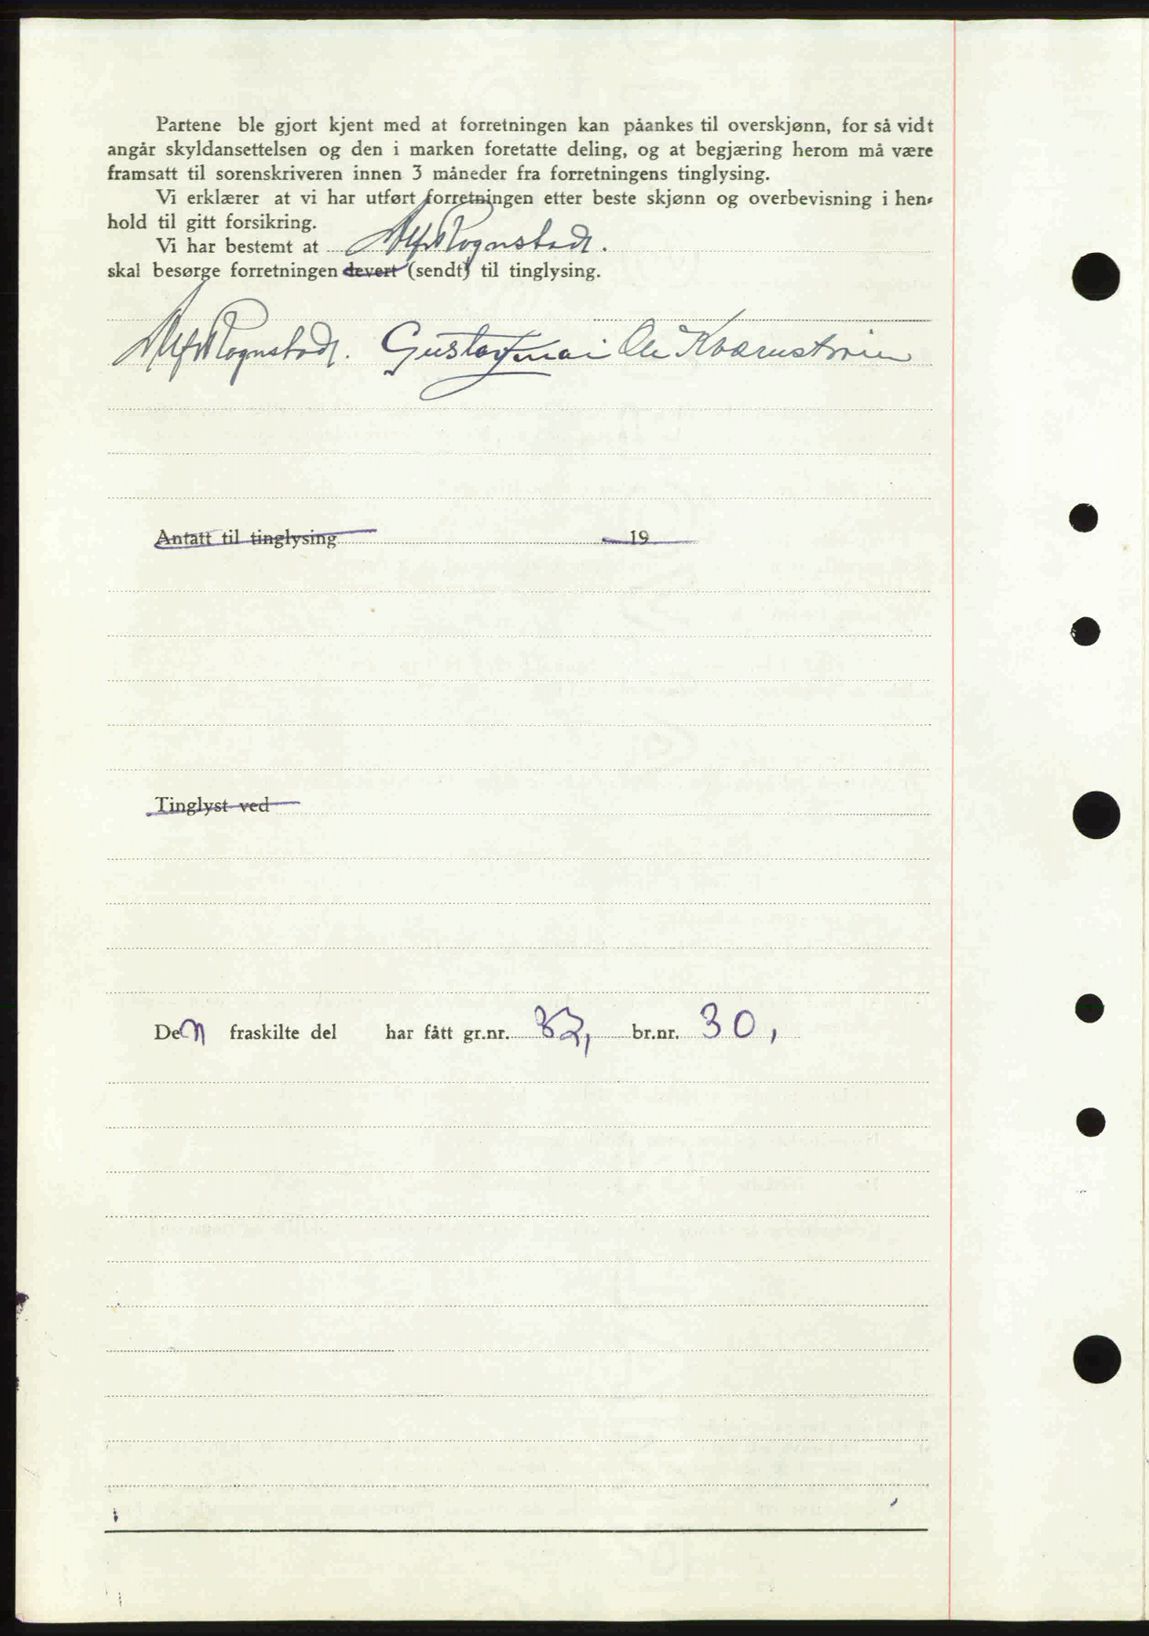 Partene ble gjort kjent med at forretningen kan påankes til overskjønn, for så vidt
angår skyldansettelsen og den i marken foretatte deling, og at begjæring herom må være
framsatt til sorenskriveren innen 3 måneder fra forretningens tinglysing.
Vi erklærer at vi har utført forretningen etter beste skjønn og overbevisning i hen-
hold til gitt forsikring.
Vi har bestemt at Alf Rognstad.
skal besørge forretningen devert (sendt) til tinglysing.
Alf Rognstad. Gustav Ole
Antatt til tinglysing 19
Tinglyst ved
Den fraskilte del har fått gr.nr. br.nr. 30,